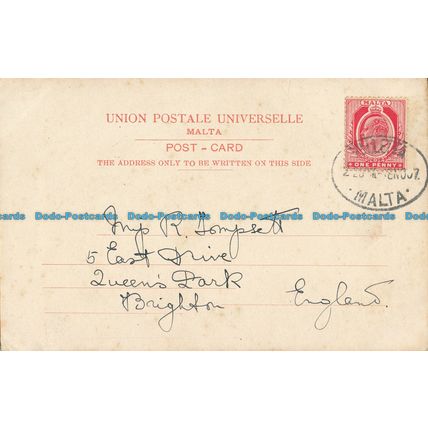 UNION POSTALE UNIVERSELLE
MALTA
POST-CARD
THE ADDRESS ONLY TO BE WRITTEN ON THIS SIDE
MALTA
ONE PENNY
MALTA
Dodo-Postcards Dodo-Postcards Dodo-Postcards Dodo-Postcards
R. Tompsett
5 East Drive
Queen's Park
Brighton England.